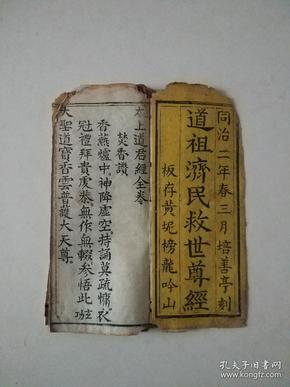 同治二年春三月培善亭刻
道祖濟民救世尊經
板存黄坭榜龍吟山
太上道君經全卷
焚香讚
香爇爐中神降虛空持誦莫疏慵衣
冠禮拜貴虔恭無作無輟參悟此功
大聖道寶香雲普護大天尊
孔夫子旧书网